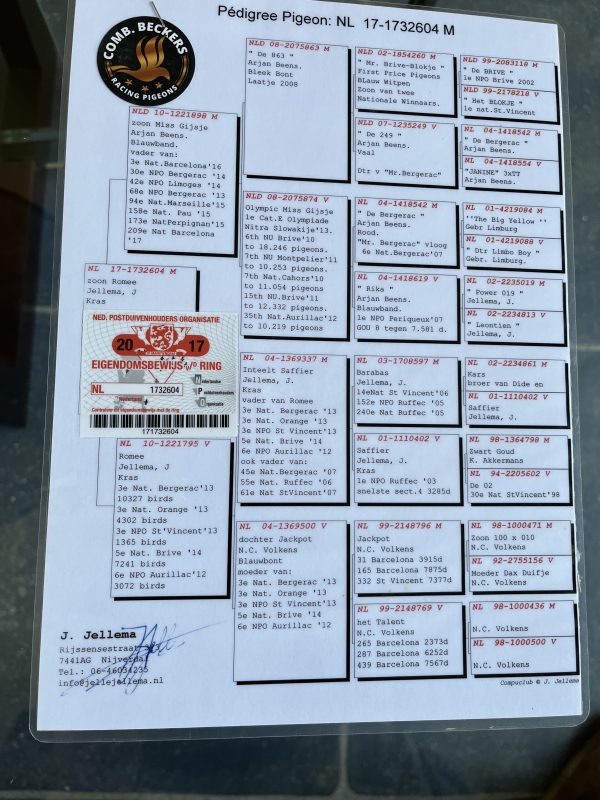 Pédigree Pigeon: NL 17-1732604 M
COMB. BECKERS
RACING PIGEONS
NLD 10-1221898 M
zoon Miss Gijsje
Arjan Beens.
Blauwband.
vader van:
3e Nat.Barcelona'16
30e NPO Bergerac '14
42e NPO Limoges '14
68e NPO Bergerac '13
94e Nat.Marseille'15
158e Nat. Pau '15
173e NatPerpignan'15
209e Nat Barcelona
'17
NL 17-1732604 M
zoon Romee
Jellema, J
Kras
NED. POSTDUIVENHOUDERS ORGANISATIE
20 17
EIGENDOMSBEWIJS v/d RING
NL 1732604
Nederlandse
Postduivenhouders
Organisatie
Controleer dit eigendomsbewijs met de ring
171732604
NL 10-1221795 V
Romee
Jellema, J
Kras
3e Nat. Bergerac'13
10327 birds
3e Nat. Orange '13
4302 birds
3e NPO St'Vincent'13
1365 birds
5e Nat. Brive '14
7241 birds
6e NPO Aurillac'12
3072 birds
NLD 08-2075863 M
" De 863 "
Arjan Beens.
Bleek Bont
Laatje 2008
NLD 08-2075874 V
Olympic Miss Gijsje
1e Cat.E Olympiade
Nitra Slowakije'13.
6th NU Brive'10
to 18.246 pigeons.
7th NU Montpelier'11
to 10.253 pigeons.
7th Nat.Cahors'10
to 11.054 pigeons
15th NU.Brive'11
to 12.332 pigeons.
35th Nat.Aurillac'12
to 10.219 pigeons
NL 04-1369337 M
Inteelt Saffier
Jellema, J.
Kras
vader van Romee
3e Nat. Bergerac '13
3e Nat. Orange '13
3e NPO St Vincent'13
5e Nat. Brive '14
6e NPO Aurillac '12
ook vader van:
45e Nat.Bergerac '07
55e Nat. Ruffec '06
61e Nat StVincent'07
NL 04-1369500 V
dochter Jackpot
N.C. Volkens
Blauwbont
moeder van:
3e Nat. Bergerac '13
3e Nat. Orange '13
3e NPO St Vincent'13
5e Nat. Brive '14
6e NPO Aurillac '12
NLD 02-1854260 M
" Mr. Brive-Blokje "
First Price Pigeons
Blauw Witpen
Zoon van twee
Nationale Winnaars.
NLD 07-1235249 V
" De 249 "
Arjan Beens.
Vaal
Dtr v "Mr.Bergerac"
NL 04-1418542 M
" De Bergerac "
Arjan Beens.
Rood.
"Mr. Bergerac" vloog
6e Nat.Bergerac'07
NL 04-1418619 V
" Rika "
Arjan Beens.
Blauwband.
1e NPO Periqueux'07
GOU 8 tegen 7.581 d.
NL 03-1708597 M
Barabas
Jellema, J.
14eNat St Vincent'06
152e NPO Ruffec '05
240e Nat Ruffec '05
NL 01-1110402 V
Saffier
Jellema, J.
Kras
1e NPO Ruffec '03
snelste sect.4 3285d
NL 99-2148796 M
Jackpot
N.C. Volkens
31 Barcelona 3915d
165 Barcelona 7875d
332 St Vincent 7377d
NL 99-2148769 V
het Talent
N.C. Volkens
265 Barcelona 2373d
287 Barcelona 6252d
439 Barcelona 7567d
NLD 99-2083118 M
" De BRIVE "
1e NPO Brive 2002
NLD 99-2178218 V
" Het BLOKJE "
1e nat.St.Vincent
NL 04-1418542 M
" De Bergerac "
Arjan Beens.
NL 04-1418554 V
"JANINE" 3xTT
Arjan Beens.
NL 01-4219084 M
''The Big Yellow ''
Gebr Limburg
NL 01-4219088 V
" Dtr Limbo Boy "
Gebr. Limburg.
NL 02-2235019 M
" Power 019 "
Jellema, J.
NL 02-2234813 V
" Leontien "
Jellema, J.
NL 02-2234861 M
Kars
broer van Dide en
NL 01-1110402 V
Saffier
Jellema, J.
NL 98-1364798 M
Zwart Goud
K. Akkermans
NL 94-2205602 V
De 02
30e Nat StVincent'98
NL 98-1000471 M
Zoon 100 x 010
N.C. Volkens
NL 92-2755156 V
Moeder Dax Duifje
N.C. Volkens
NL 98-1000436 M
N.C. Volkens
NL 98-1000500 V
N.C. Volkens
J. Jellema
Rijssensestraat
7441AG Nijverdal
Tel.: 06-46034235
info@jellejellema.nl
Compuclub © J. Jellema